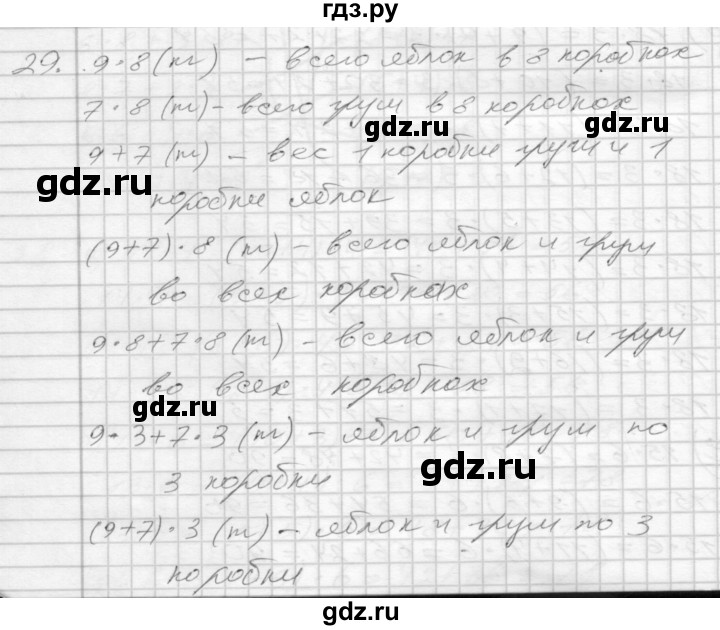 гдз.ру
29. 9·8 (кг) – всего яблок в 8 коробках
7·8 (кг) – всего груш в 8 коробках
gdz.ru
gdz.ru
9+7 (кг) – вес 1 коробки груш и 1
gdz.ru
коробки яблок
(9+7)·8 (кг) – всего яблок и груш
во всех коробках
9·8+7·8 (кг) – всего яблок и груш
во всех коробках
gdz.ru
9·3+7·3 (кг) – яблок и груш по
gdz.ru
3 коробки
(9+7)·3 (кг) – яблок и груш по 3
коробки
gdz.ru